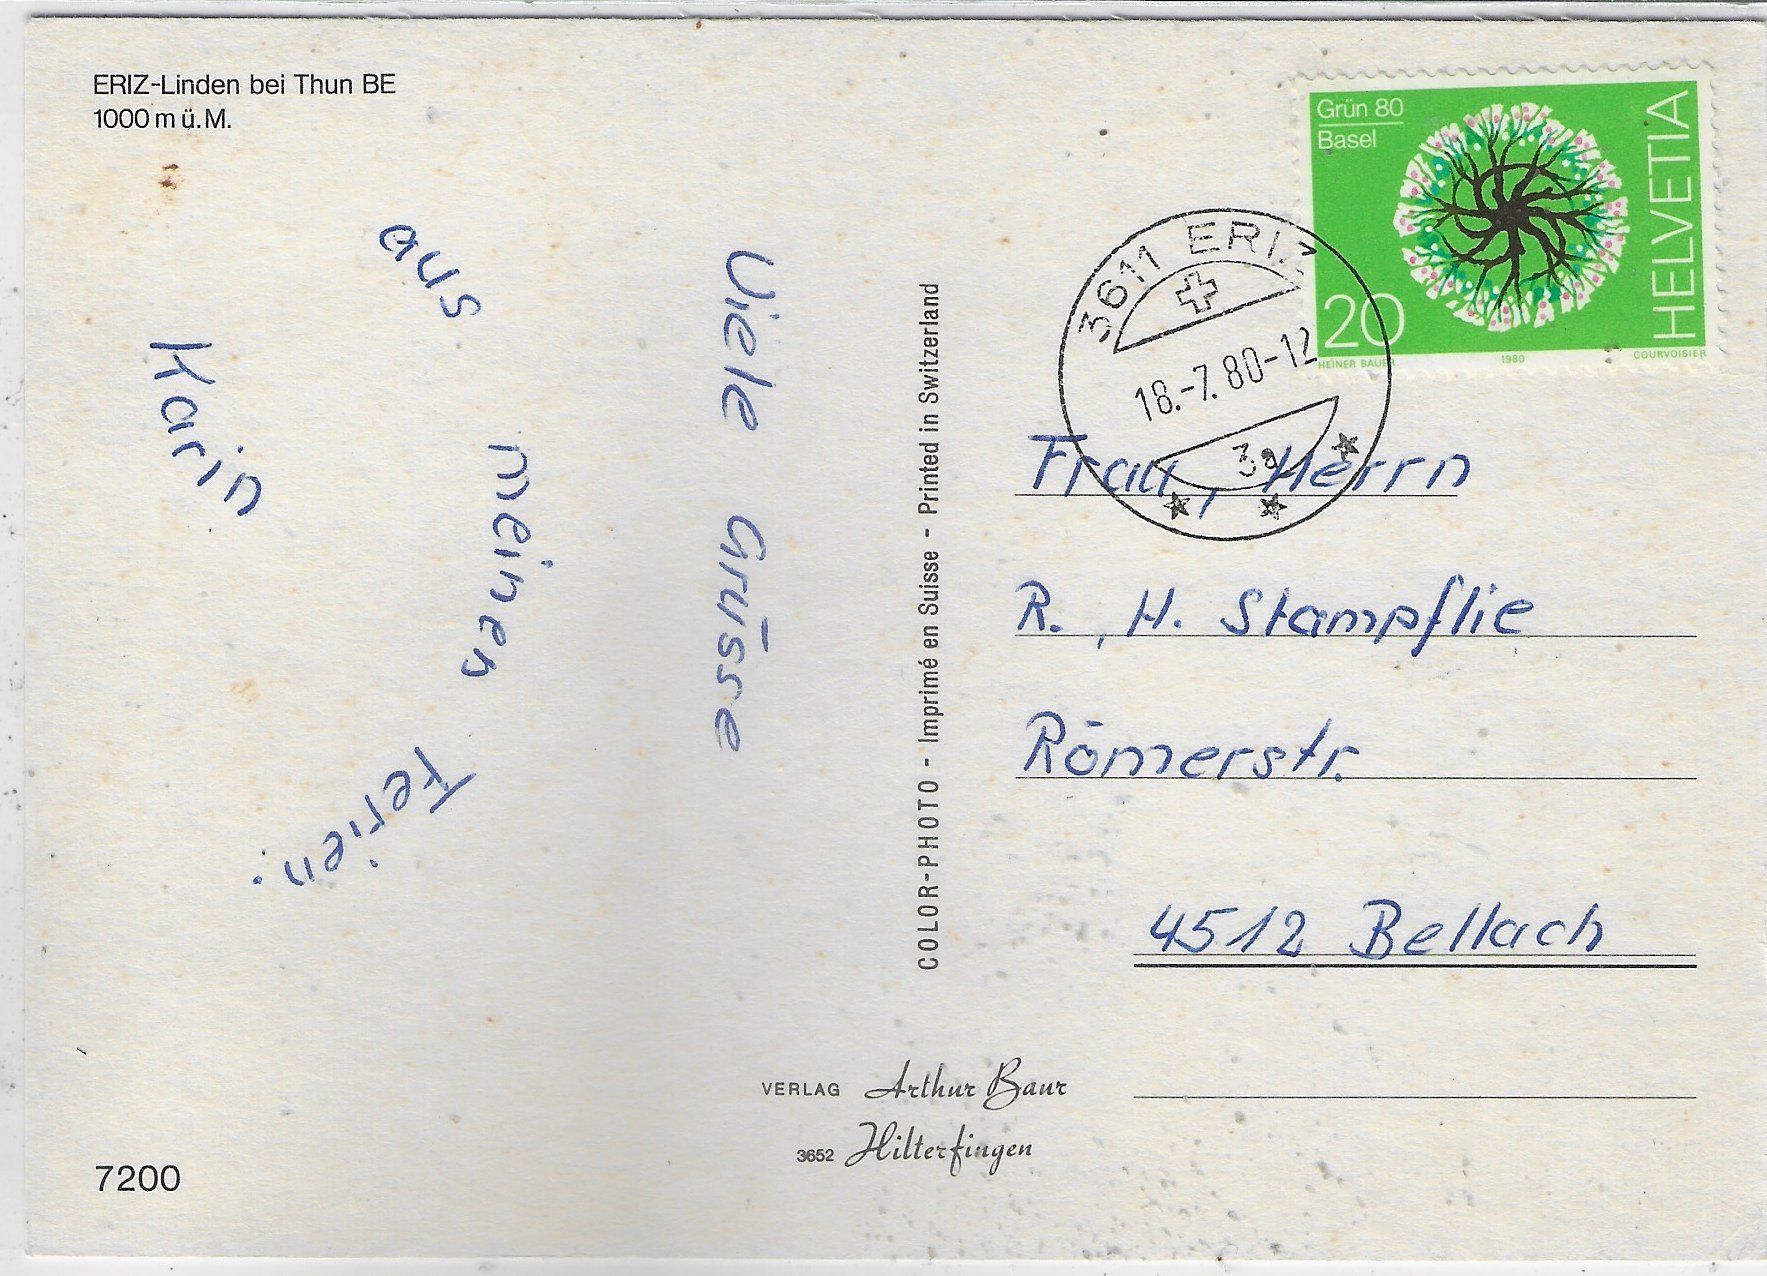 ERIZ-Linden bei Thun BE
1000 m ü. M.
Viele Grüsse
aus meinen Ferien.
Karin
COLOR-PHOTO - Imprimé en Suisse - Printed in Switzerland
Grün 80
Basel
HELVETIA
20
HEINER BAUER 1980 COURVOISIER
3611 ERIZ
18.-7.80-12
3a
Frau, Herrn
R. , H. Stampflie
Römerstr.
4512 Bellach
VERLAG Arthur Baur
3652 Hilterfingen
7200